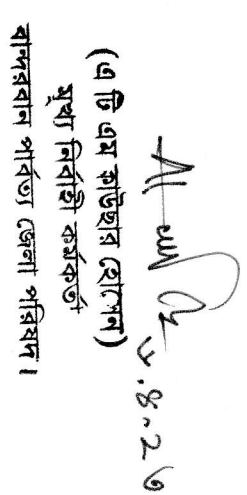 ৮.৪.২৩
(এ টি এম কাউছার হোসেন)
মুখ্য নির্বাহী কর্মকর্তা
বান্দরবান পার্বত্য জেলা পরিষদ।